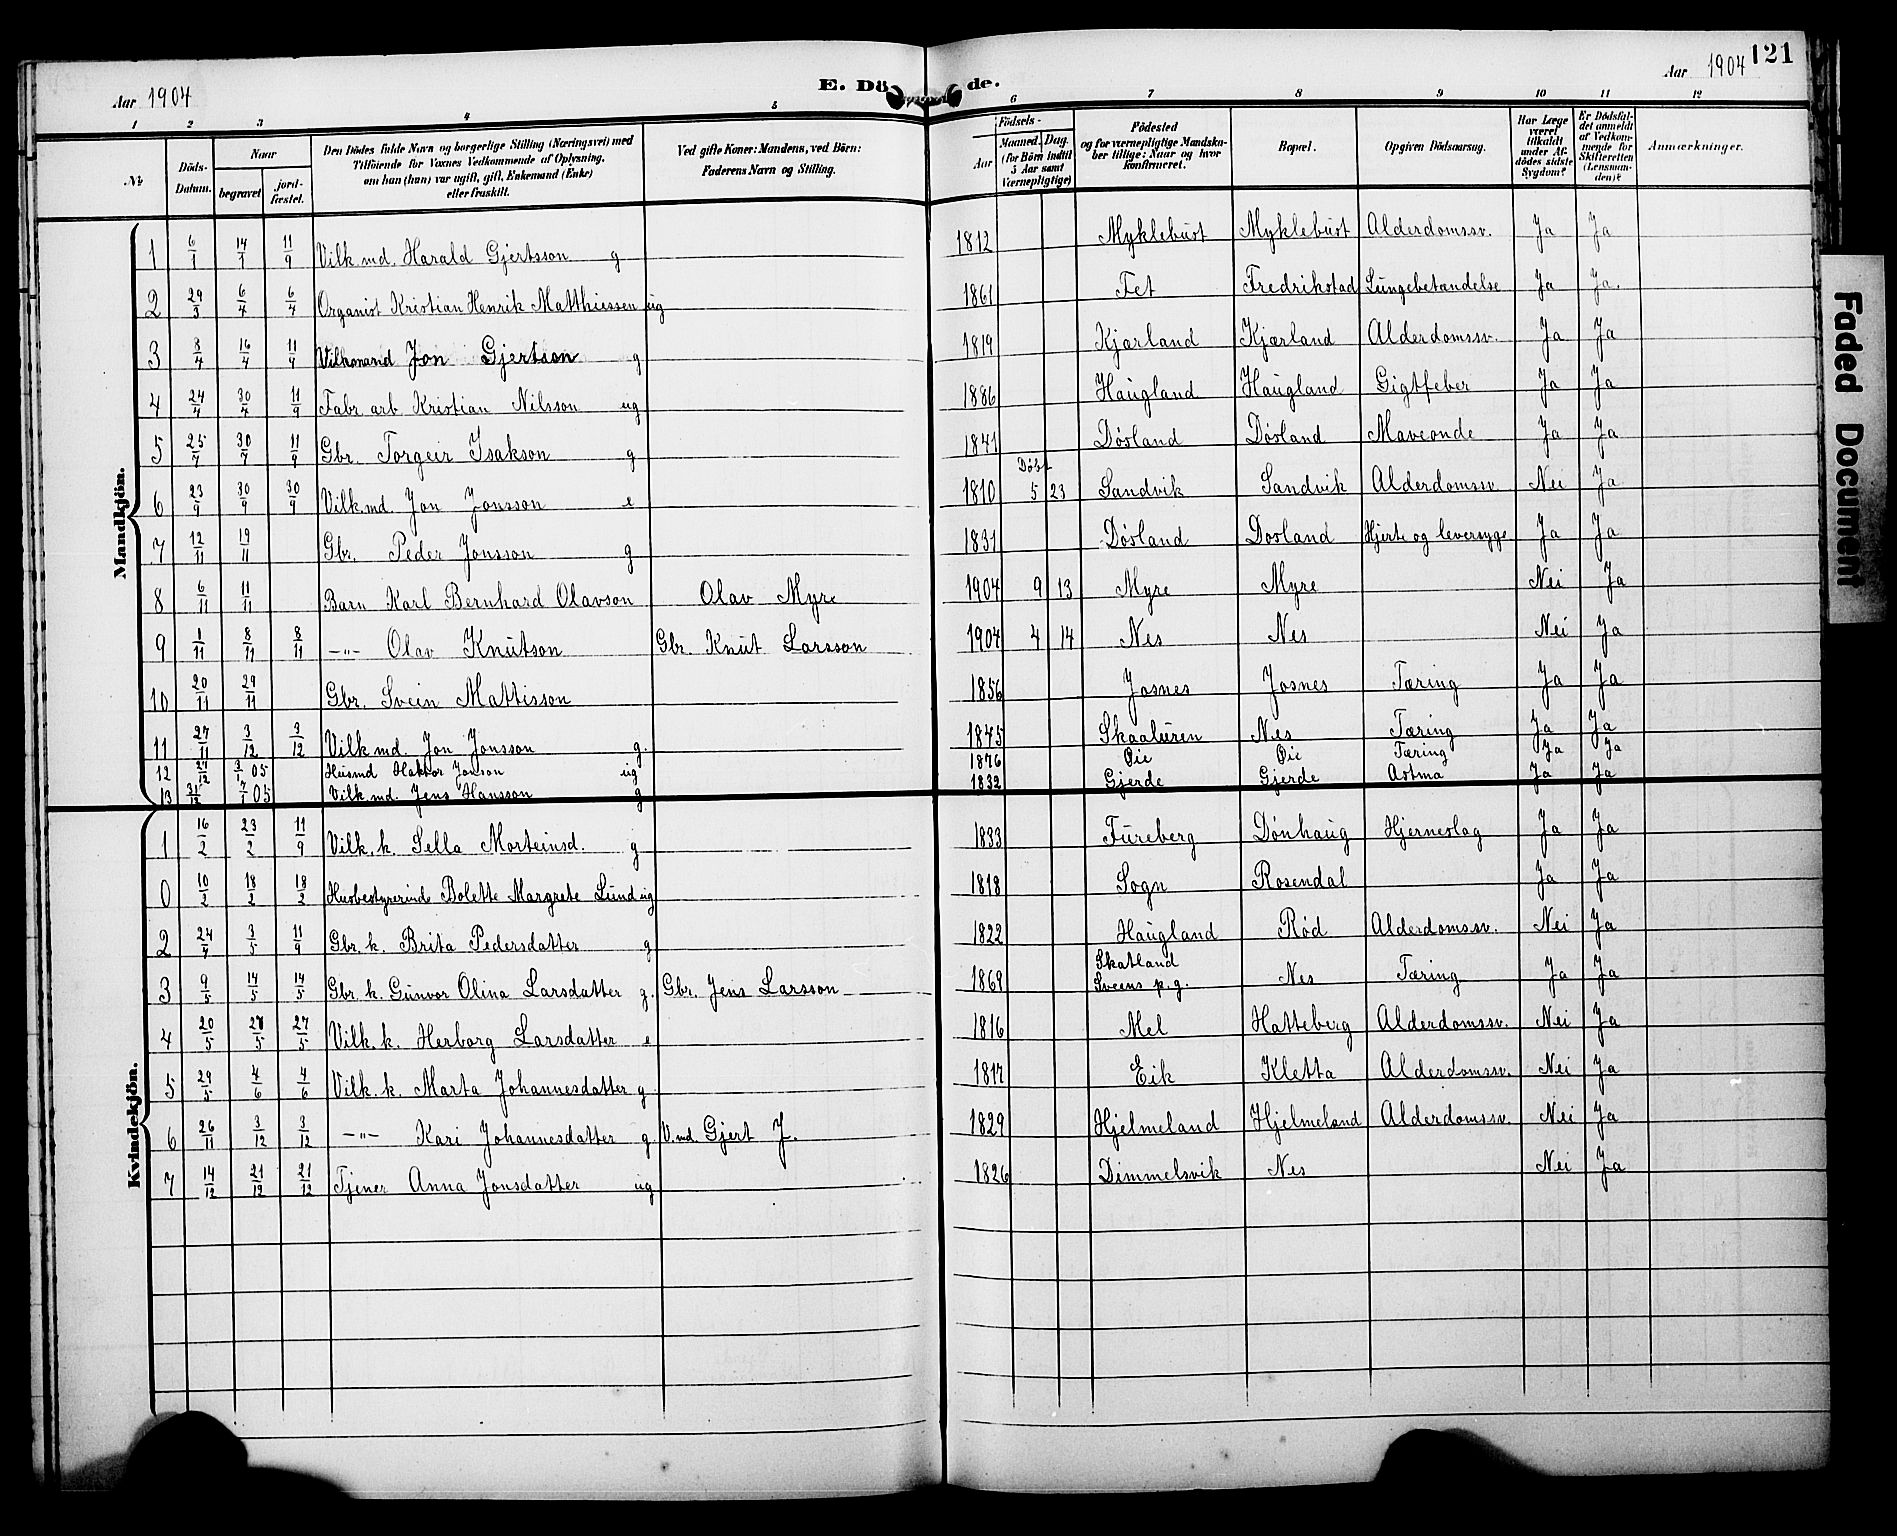 121
Aar 1904 E. Dö de. Aar 1904
1 2 3 4 5 6 7 8 9 10 11 12
№ Döds-Datum. Naar begravet jord-fæstet. Den Dödes fulde Navn og borgerlige Stilling (Næringsvei) med Tilföiende for Voxnes Vedkommende af Oplysning, om han (hun) var ugift, gift, Enkemand (Enke) eller fraskilt. Ved gifte Koner: Mandens, ved Börn: Faderens Navn og Stilling. Födsels- Aar Maaned. Dag. (for Börn indtil 5 Aar samt Værnepligtige) Födested og for værnepligtige Mandskaber tillige: Naar og hvor konfirmeret. Bopæl. Opgiven Dödsaarsag. Har Læge været tilkaldt under Afdödes sidste Sygdom? Er Dödsfaldet anmeldt af Vedkommende for Skifteretten (Lensmanden)? Anmærkninger.
Mandkjön.
1 6/1 14/1 11/9 Vilk.md. Harald Gjertsson g 1812 Myklebust Myklebust Alderdomssv. Ja Ja
2 29/3 6/4 6/4 Organist Kristian Henrik Matthiessen ug 1861 Fet Fredrikstad Lungebetændelse Ja Ja.
3 8/4 16/4 11/9 Vilkmand Jon Gjertson g 1819 Kjærland Kjærland Alderdomssv. Ja Ja
4 24/4 30/4 11/9 Fabr arb Kristian Nilsson ug 1886 Haugland Haugland Gigtfeber Ja Ja
5 25/7 30/7 11/9 Gbr. Torgeir Isakson g 1841 Døsland Døsland Maveonde Ja Ja
6 23/9 30/9 30/9 Vilk.md. Jon Jonsson e 1810 Døbt 5 23 Sandvik Sandvik Alderdomssv Nei Ja
7 12/11 19/11 Gbr. Peder Jonsson g 1831 Døsland Døsland Hjerte og leversyge Ja Ja
8 6/11 11/11 Barn Karl Bernhard Olavson Olav Myre 1904 9 13 Myre Myre Nei Ja
9 1/11 8/11 8/11 -"- Olav Knutson Gbr. Knut Larsson 1904 4 14 Nes Nes Nei Ja
10 20/11 29/11 Gbr. Svein Mattisson 1856 Josnes Josnes Tæring Ja Ja
11 27/11 3/12 3/12 Vilk.md. Jon Jonsson g. 1845 Skaaluren Nes Tæring Ja Ja
12 27/12 3/1 05 Husmd Haktor Jonson ug 1876 Øie Øie Tæring Ja Ja
13 31/12 7/1 05 Vilk.md. Jens Hansson g 1832 Gjerde Gjerde Astma Ja Ja
Kvindekjön.
1 16/2 23/2 11/9 Vilk.k. Sella Morteinsd. g 1833 Fureberg Dønhaug Hjerneslag Ja Ja
0 10/2 18/2 18/2 Husbestyrerinde Bolette Margrete Lund ug 1818 Sogn Rosendal Ja Ja
2 24/4 3/5 11/9 Gbr.k. Brita Pedersdatter g 1822 Haugland Rød Alderdomssv. Nei Ja
3 9/5 14/5 14/5 Gbr.k. Gunvor Olina Larsdatter g. Gbr. Jens Larsson 1869 Skatland Sveens p.g. Nes Tæring Ja Ja
4 20/5 27/5 27/5 Vilk.k. Herborg Larsdatter e 1816 Mel Hatteberg Alderdomssv. Nei Ja
5 29/5 4/6 4/6 Vilk.k. Marta Johannesdatter g 1817 Eik Kletta Alderdomssv. Nei Ja
6 26/11 3/12 3/12 -"- Kari Johannesdatter g. V.md Gjert J. 1829 Hjelmeland Hjelmeland Alderdomssv. Nei Ja
7 14/12 21/12 21/12 Tjener Anna Jonsdatter ug 1826 Dimmelsvik Nes Nei Ja
Faded Document